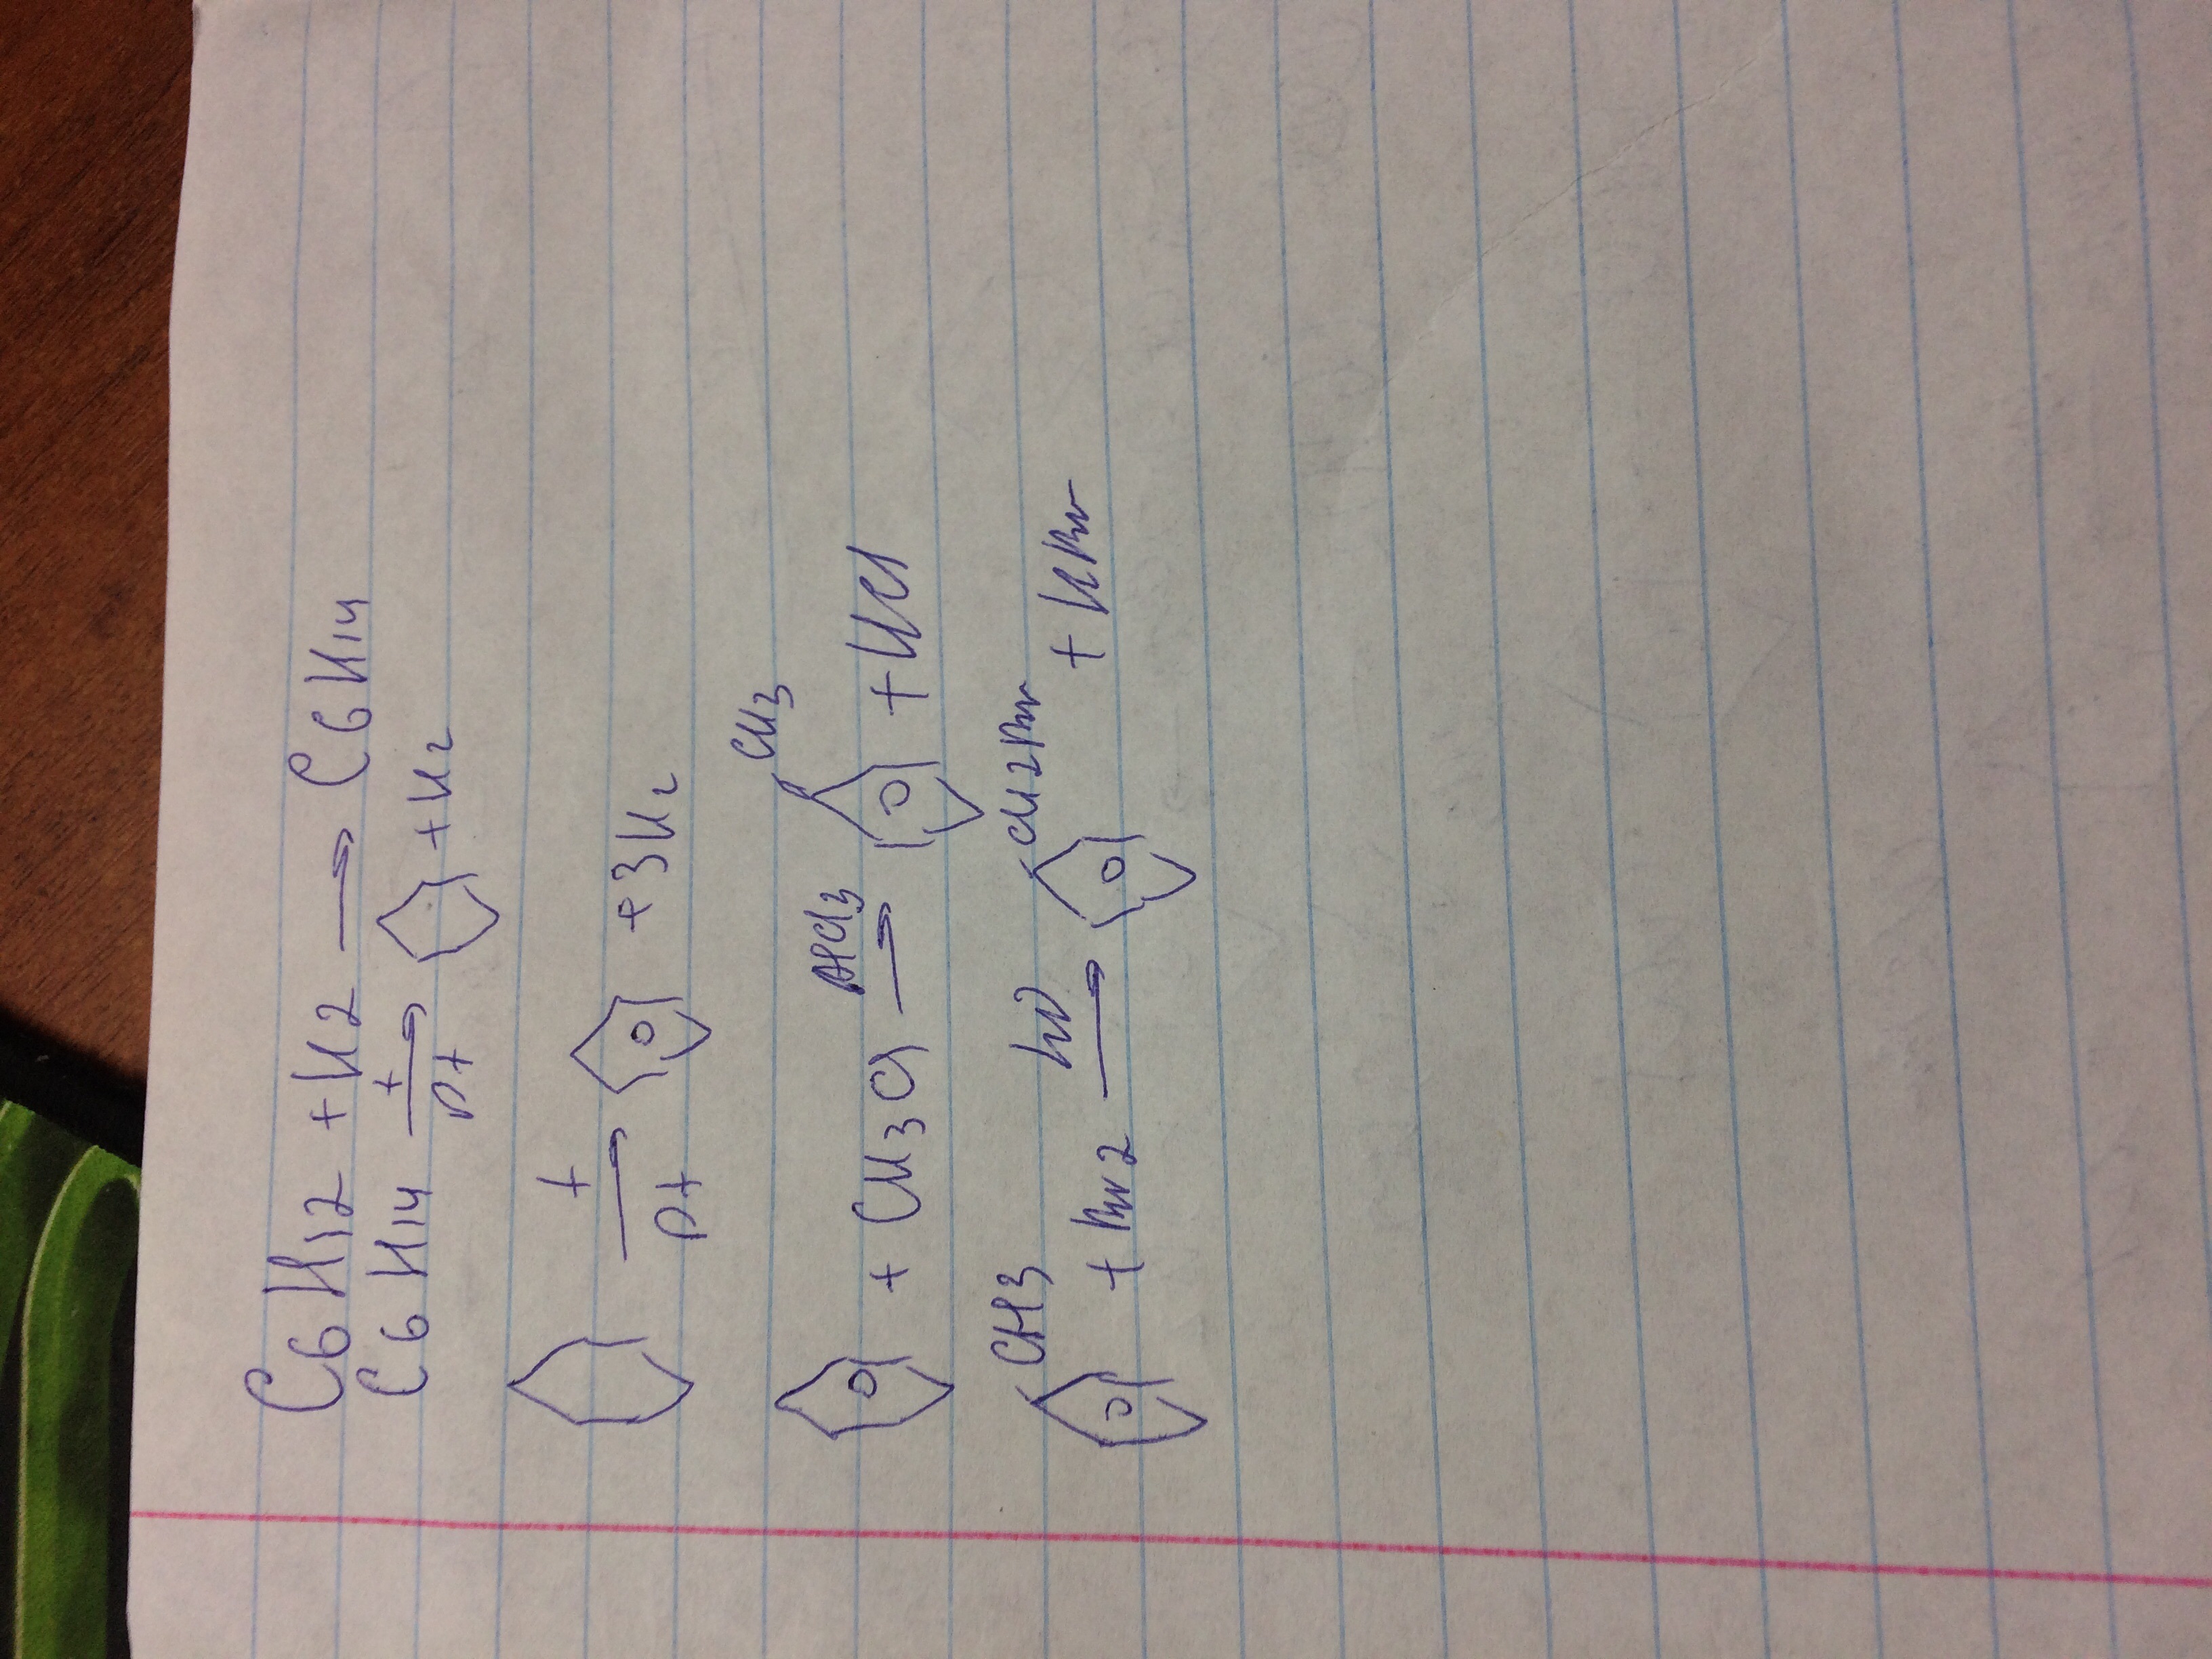 C6H12 + H2 → C6H14
C6H14 t Pt → + H2
t Pt → + 3H2
+ CH3Cl AlCl3 → CH3 + HCl
CH3 + Br2 hν → CH2Br + HBr